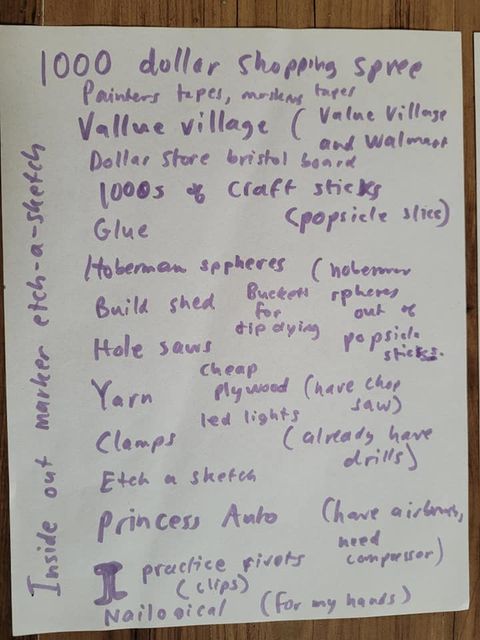 1000 dollar shopping spree
Painters tapes, masking tapes
Vallue village ( Value Village
and Walmart
Dollar Store bristol board
1000s of craft sticks
(popsicle slics)
Glue
Hoberman sppheres (hoberman
spheres
out of
popsicle
sticks.
Build shed
Buckets
for
dip dying
Hole saws
cheap
plywood (have chop
saw)
Yarn
led lights
Clamps (already have
drills)
Etch a sketch
Princess Auto (have airbrush,
need
compressor)
I practice rivets
(clips)
Nailogical (for my hands)
Inside out marker etch-a-sketch